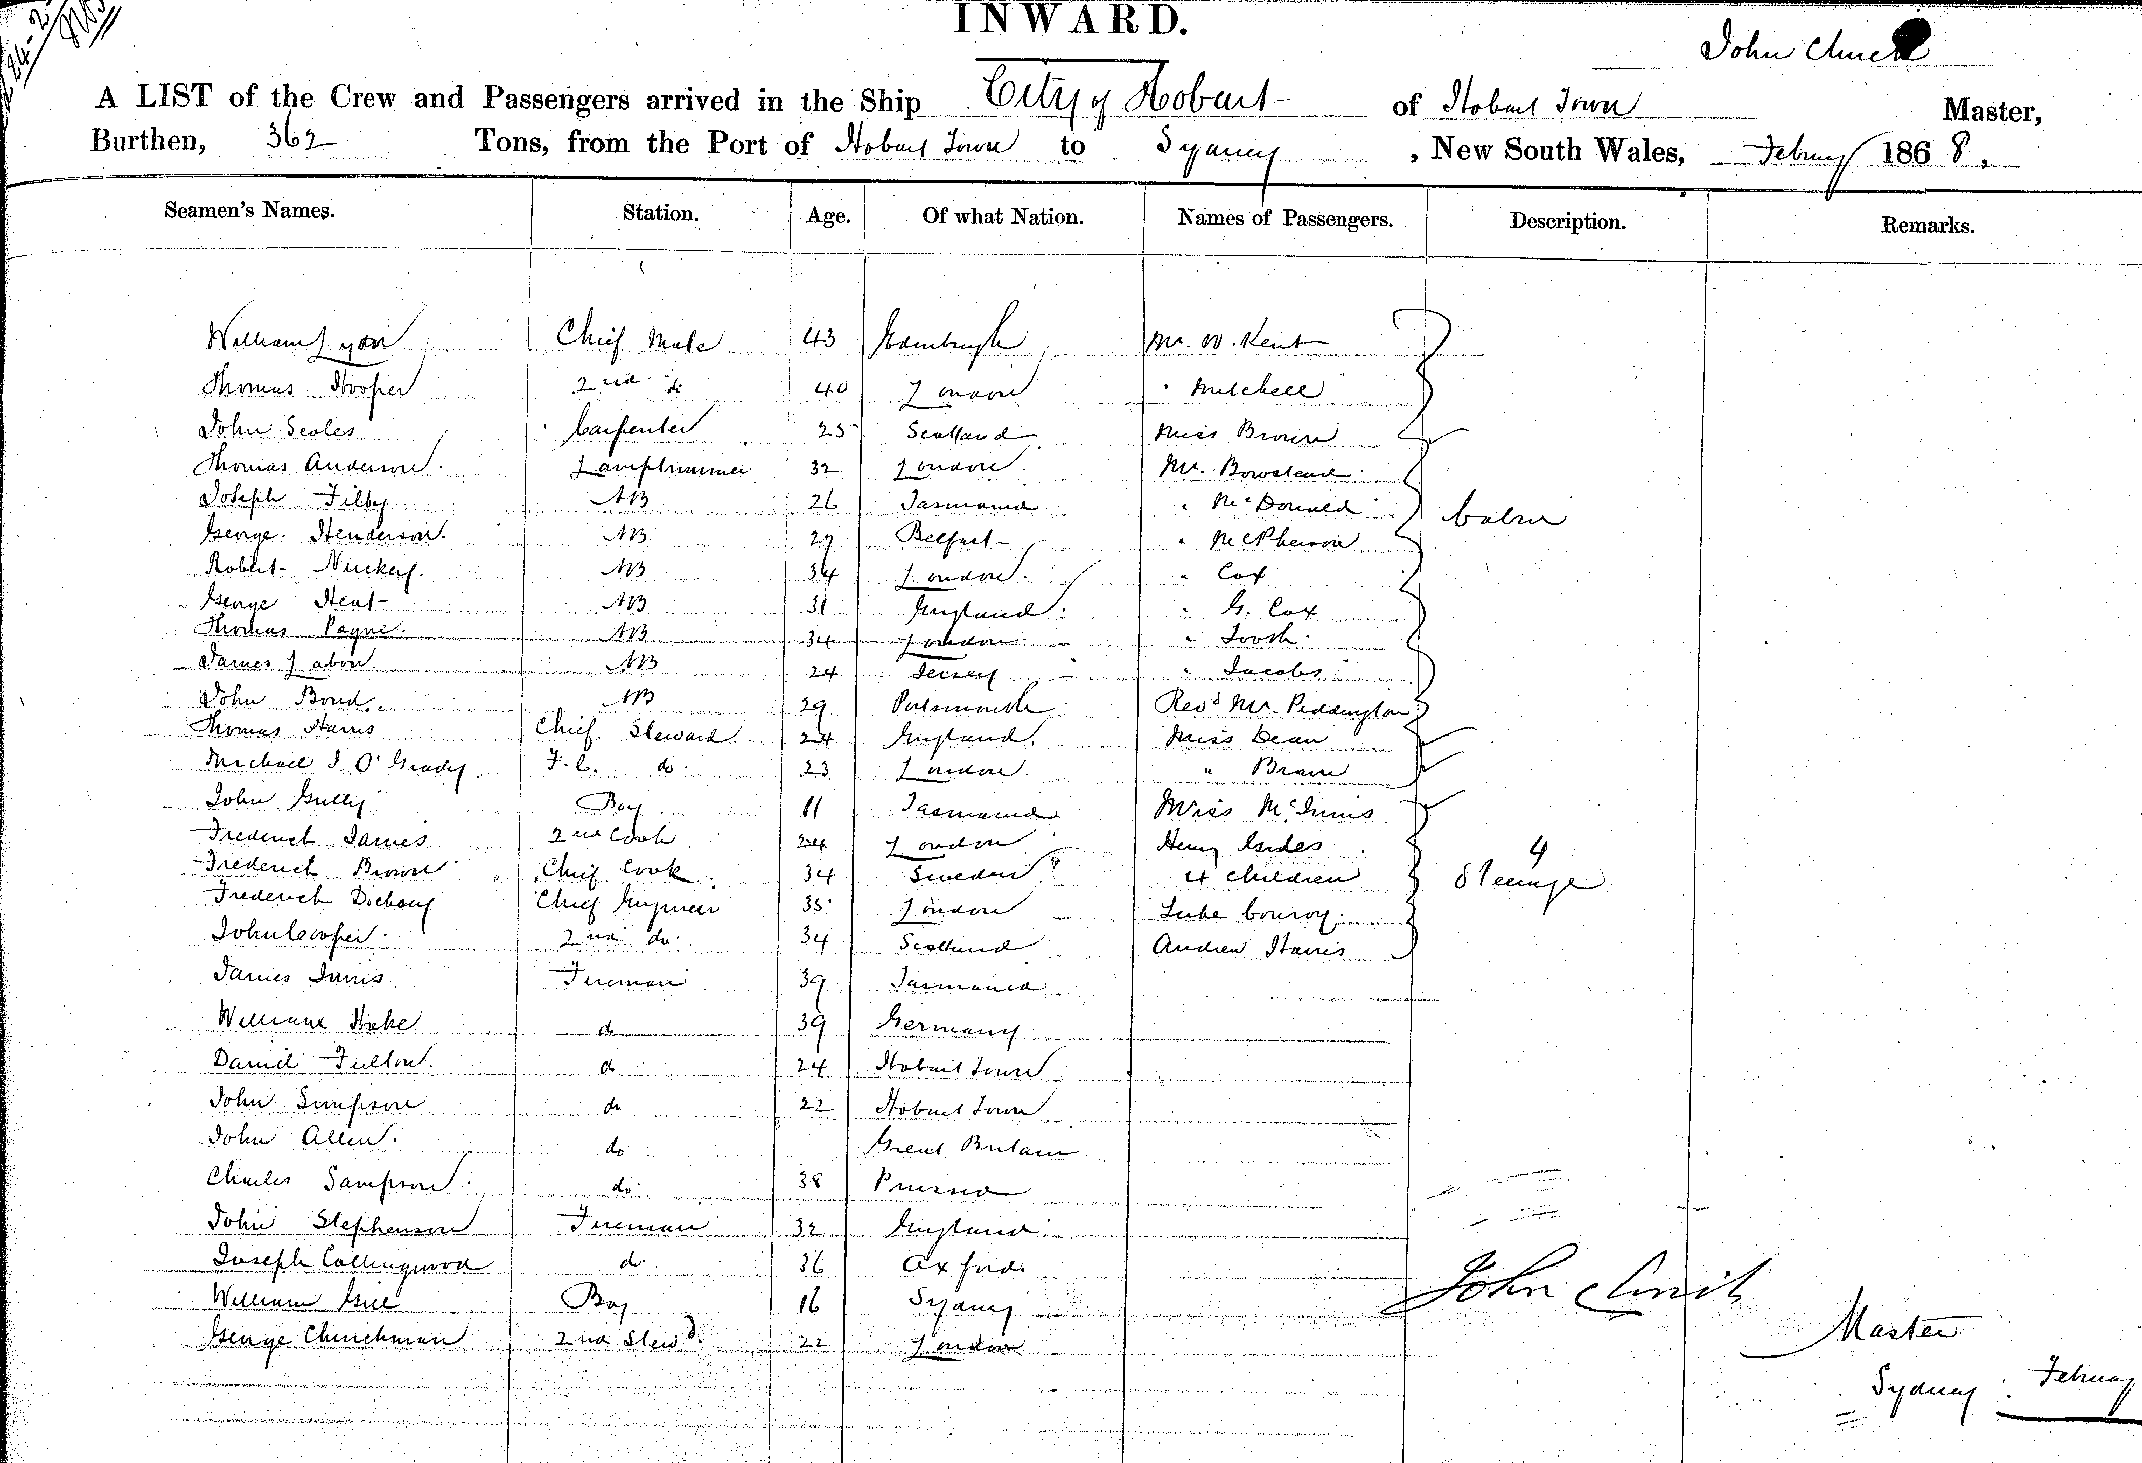 INWARD.
John Clinch
A LIST of the Crew and Passengers arrived in the Ship City of Hobart of Hobart Town Master,
Burthen, 362 Tons, from the Port of Hobart Town to Sydney, New South Wales, February 1868.
Seamen's Names. Station. Age. Of what Nation. Names of Passengers. Description. Remarks.
William Lyon Chief Mate 43 Edinburgh Mr. W. Kent
Thomas Hooper 2nd do 40 London " Mitchell
John Scoles Carpenter 25 Scotland Miss Brown
Thomas Anderson Lamptrimmer 32 London Mr. Bowstead
Joseph Filby AB 26 Tasmania " McDonald Cabin
George Henderson AB 29 Belfast " McPherson
Robert AB 34 London " Cox
George Heat AB 31 England " G. Cox
Thomas Payne AB 34 London " Tooth
James Labon AB 24 Jersey " Jacobs
John Bond AB 29 Portsmouth Revd Mr. Piddington
Thomas Harris Chief Steward 24 England Miss Dean
Michael J O'Grady F.C. do 23 London "
John Gully Boy 11 Tasmania Miss McInnis
Frederick James 2nd Cook 24 London Henry
Frederick Brown Chief Cook 34 Sweden 4 Children 4 Steerage
Frederick Chief Engineer 35 London Luke Conroy
John Cooper 2nd do 34 Scotland Andrew Harris
James Innis Fireman 39 Tasmania
William Hake do 39 Germany
Daniel Fulton do 24 Hobart Town
John Simpson do 22 Hobart Town
John Allen do Great Britain
Charles Sampson do 38 Prussia
John Stephenson Fireman 32 England
Joseph Collingwood do 36 Oxford
William Gill Boy 16 Sydney
George Churchman 2nd Stewd 22 London
John Clinch
Master
Sydney February